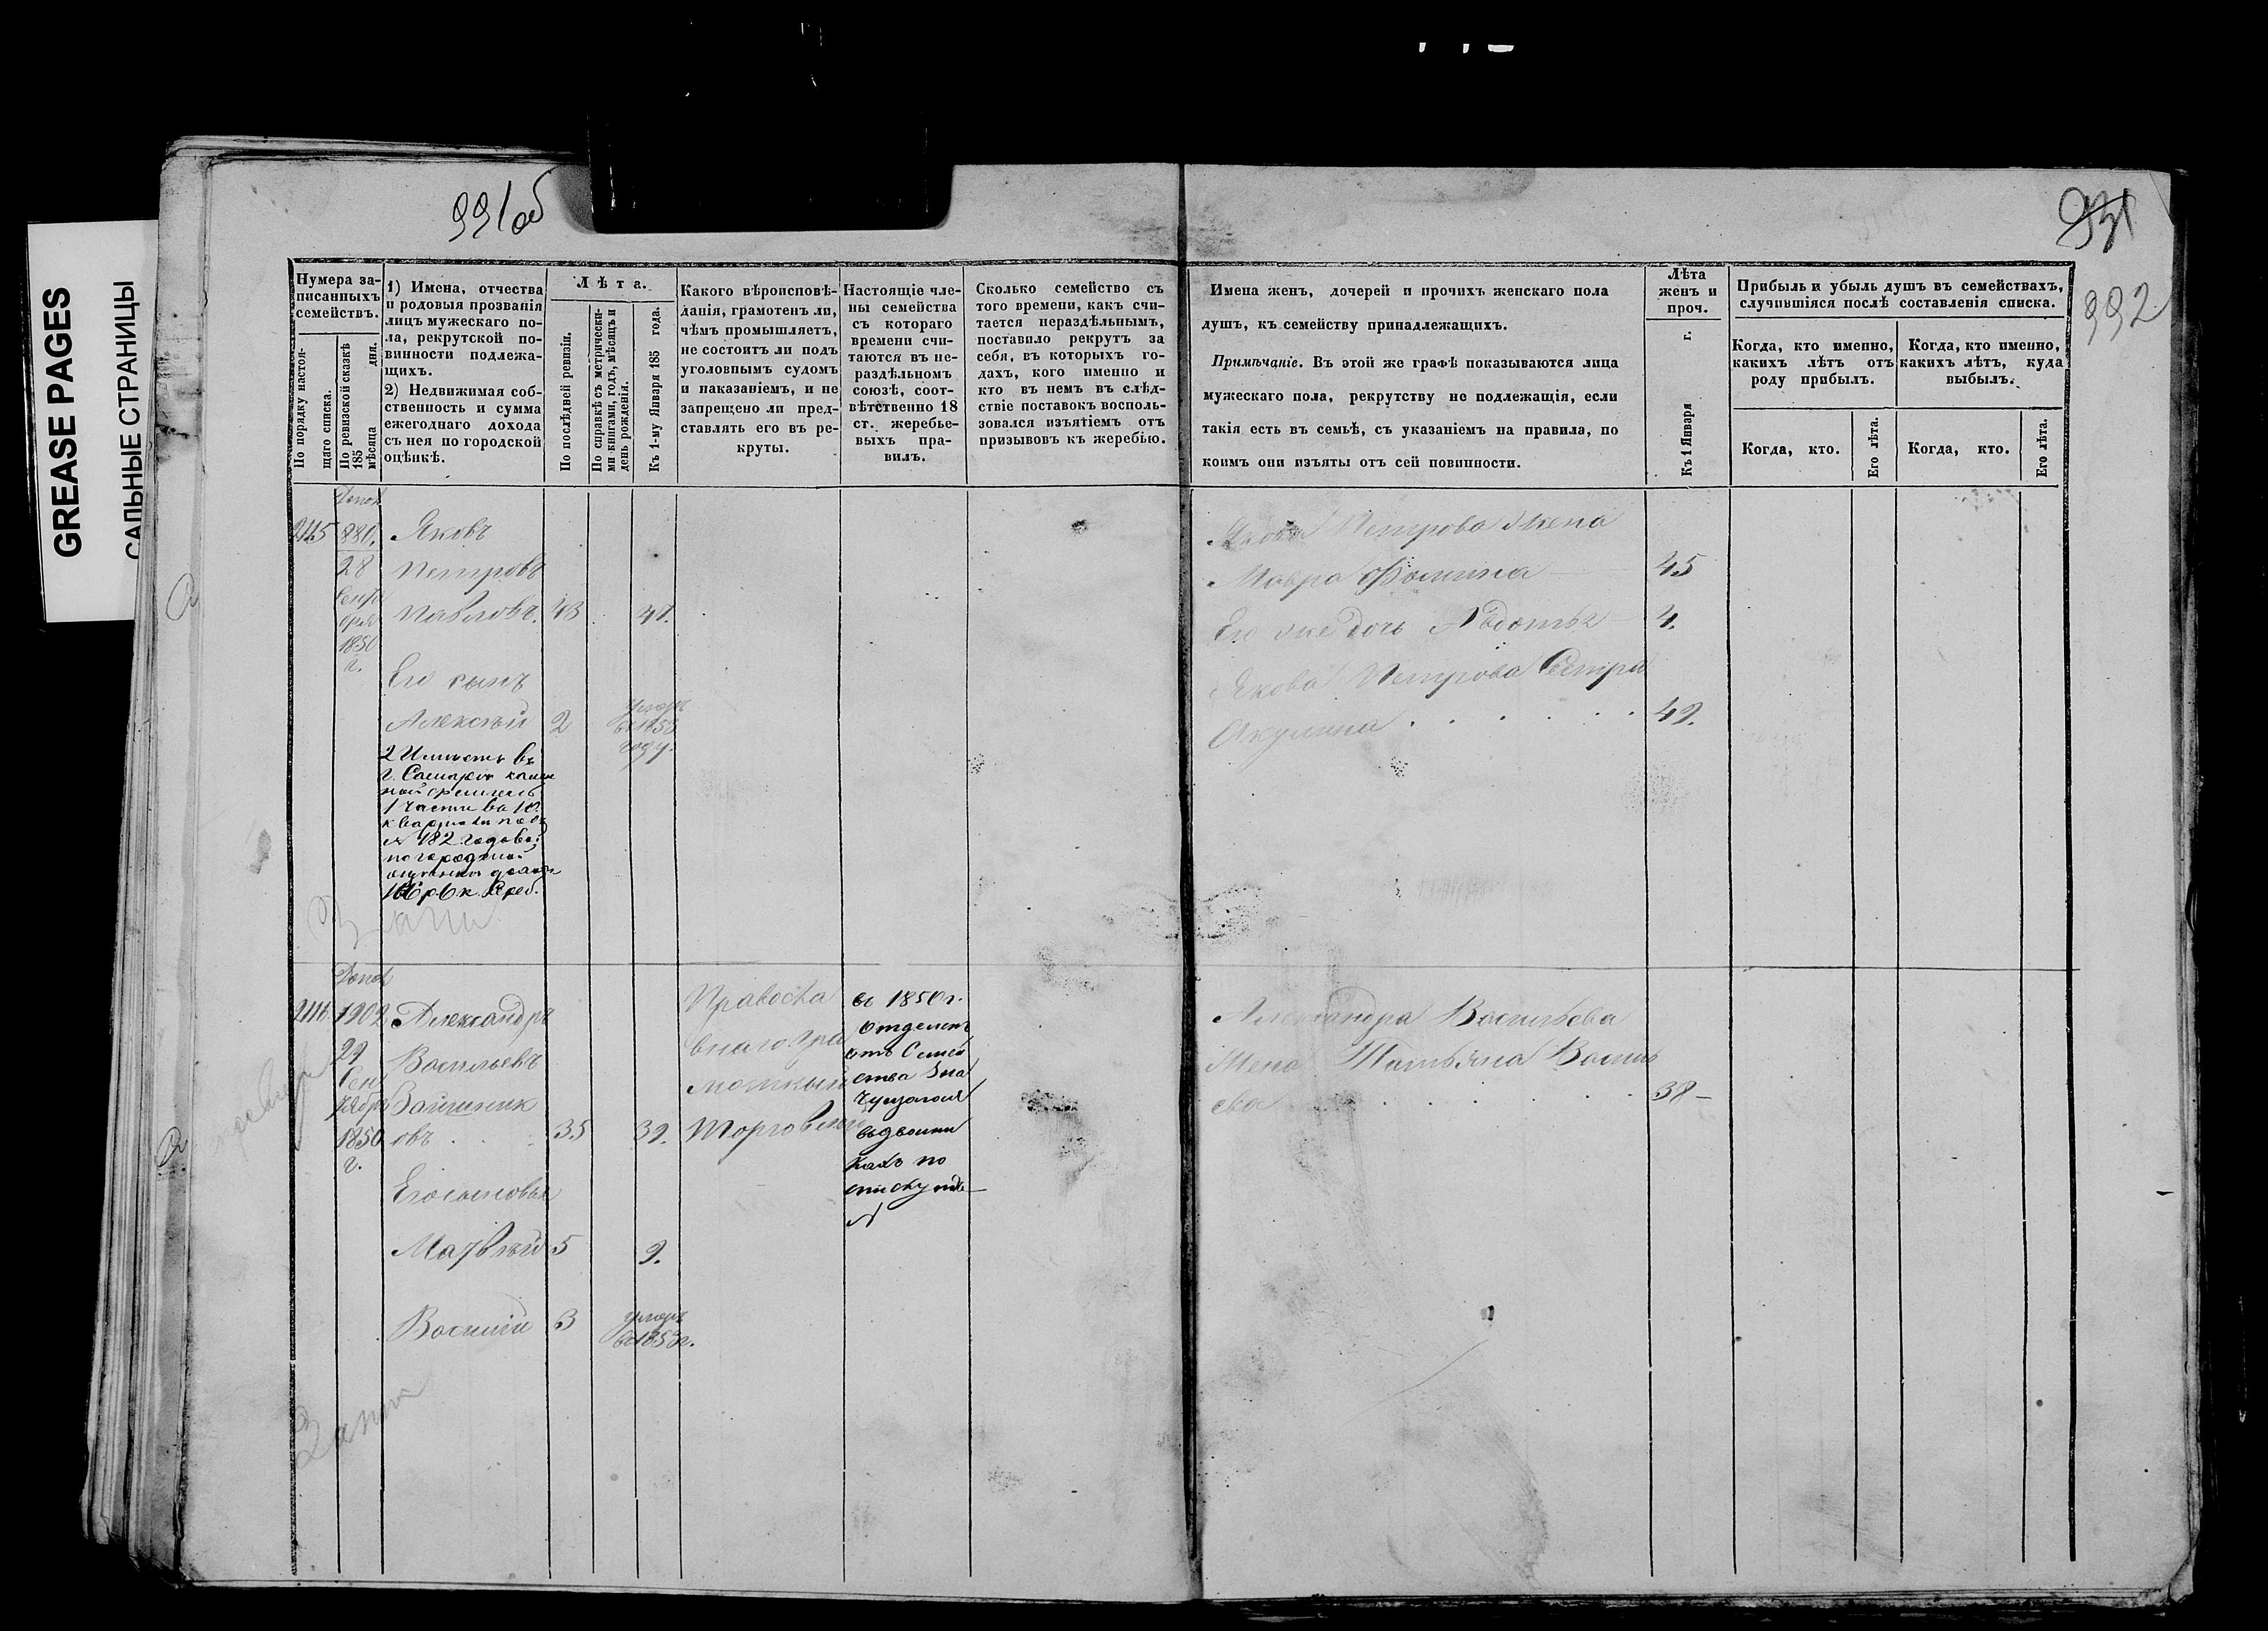 GREASE PAGES
САЛЬНЫЕ СТРАНИЦЫ
991об
931
992
Нумера за-
писанныхъ
семействъ.
По порядку настоя-
щаго списка.
По ревизской сказкѣ
185 дня.
мѣсяца
1) Имена, отчества
и родовыя прозванія
лицъ мужескаго по-
ла, рекрутской по-
винности подлежа-
щихъ.
2) Недвижимая соб-
ственность и сумма
ежегоднаго дохода
съ нея по городской
оцѣнкѣ.
Лѣта.
По послѣдней ревизіи.
По справкѣ съ метрически-
ми книгами, годъ, мѣсяцъ и
день рожденія.
Къ 1-му Января 185 года.
Какого вѣроисповѣ-
данія, грамотенъ ли,
чѣмъ промышляетъ,
не состоитъ ли подъ
уголовнымъ судомъ
и наказаніемъ, и не
запрещено ли пред-
ставлять его въ ре-
круты.
Настоящіе чле-
ны семейства
съ котораго
времени счи-
таются въ не-
раздѣльномъ
союзѣ, соот-
вѣтственно 18
ст. жеребье-
выхъ пра-
вилъ.
Сколько семейство съ
того времени, какъ счи-
тается нераздѣльнымъ,
поставило рекрутъ за
себя, въ которыхъ го-
дахъ, кого именно и
кто въ немъ въ слѣд-
ствіе поставокъ восполь-
зовался изъятіемъ отъ
призывовъ къ жеребью.
Имена женъ, дочерей и прочихъ женскаго пола
душъ, къ семейству принадлежащихъ.
Примѣчаніе. Въ этой же графѣ показываются лица
мужескаго пола, рекрутству не подлежащія, если
такія есть въ семьѣ, съ указаніемъ на правила, по
коимъ они изъяты отъ сей повинности.
Лѣта
женъ и
проч.
Къ 1 Января г.
Прибыль и убыль душъ въ семействахъ,
случившіяся послѣ составленія списка.
Когда, кто именно,
какихъ лѣтъ отъ
роду прибылъ.
Когда, кто именно,
какихъ лѣтъ, куда
выбылъ.
Когда, кто.
Его лѣта.
Когда, кто.
Его лѣта.
880. Яковъ
28 Петровъ
Павловъ. 43 47.
1850
г.
Его сынъ
Алексѣй 2
въ 1853
году.
2 Имѣетъ въ
1 части во 10
№ 182 годова
Якова Петрова жена
Мавра Фомина 45
Его же дочь Авдотья 4.
Якова Петрова Сестра
Акулина 49.
1902 Александръ
29 Васильевъ
Сен
тябр
1850 овъ 35 39.
г.
Его сыновья
Матвѣй 5 9.
Василій 3
въ 1853 г.
Православ
внаго гра
мотный
Торговлей
въ 1850 г.
отделенъ
отъ Семей
ства
списку подъ
№
Александра Васильева
Жена Татьяна Василь
ева 38